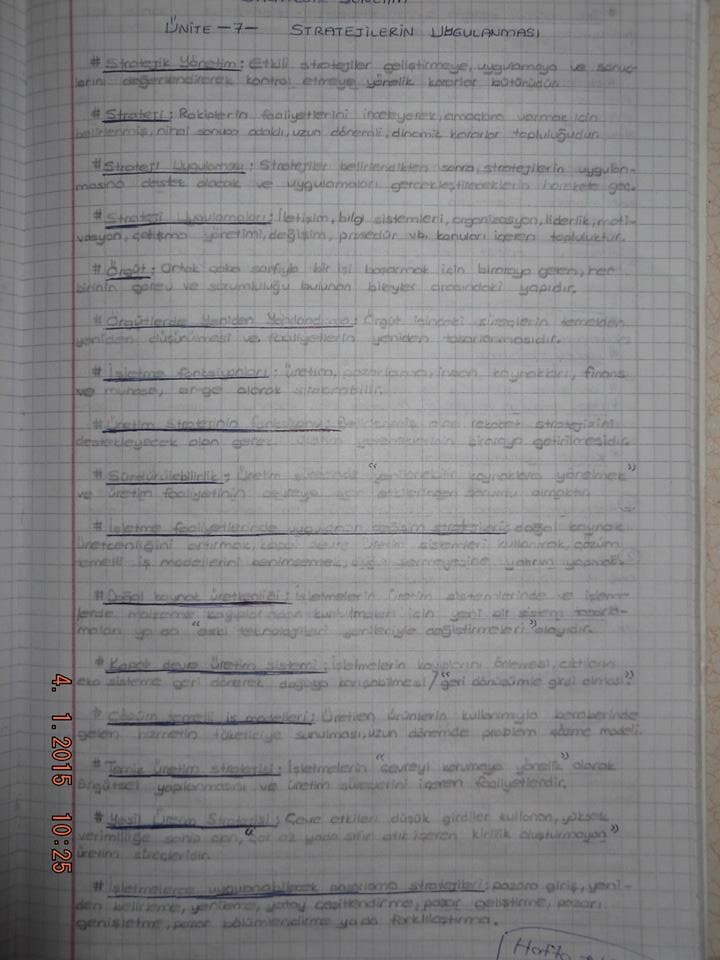 ÜNİTE -7- STRATEJİLERİN UYGULANMASI
# Stratejik Yönetim: Etkili stratejiler geliştirmeye, uygulamaya ve sonuç-
larını değerlendirerek kontrol etmeye yönelik kararlar bütünüdür.
# Strateji: Rakiplerin faaliyetlerini inceleyerek, amaçlara varmak için
belirlenmiş, nihai sonuca odaklı, uzun dönemli, dinamik kararlar topluluğudur.
# Strateji Uygulaması: Stratejiler belirlendikten sonra, stratejilerin uygulan-
masına destek olacak ve uygulamaları gerçekleştireceklerin harekete geç.
# Strateji Uygulamaları: İletişim, bilgi sistemleri, organizasyon, liderlik, moti-
vasyon, çatışma yönetimi, değişim, prosedür vb. konuları içeren topluluktur.
# Örgüt: Ortak çaba sarfıyla bir işi başarmak için biraraya gelen, her
birinin görev ve sorumluluğu bulunan bireyler arasındaki yapıdır.
# Örgütlerde Yeniden Yapılandırma: Örgüt içindeki süreçlerin temelden
yeniden düşünülmesi ve faaliyetlerin yeniden tasarlanmasıdır.
# İşletme fonksiyonları: Üretim, pazarlama, insan kaynakları, finans
ve muhase, ar-ge olarak sıralanabilir.
# Üretim Stratejinin fonksiyonu: Belirlenmiş olan rekabet stratejisini
destekleyecek olan gerekli üretim yeteneklerinin biraraya getirilmesidir.
# Sürdürülebilirlik: Üretim sürecinde "yenilenebilir kaynaklara yönelmek"
ve üretim faaliyetinin çevreye olan etkilerinden sorumlu olmaktır.
# İşletme faaliyetlerinde uygulanan değişim stratejileri: doğal kaynak
üretkenliğini artırmak, kapalı devre üretim sistemleri kullanmak, çözüm
temelli iş modellerini benimsemek, doğa sermayesine yatırım yapmak.
# Doğal kaynak üretkenliği: İşletmelerin üretim sistemlerinde ve işlem-
lerde malzeme kayıplarından kurtulmaları için yeni bir sistem tasarla-
maları ya da "eski teknolojileri yenileriyle değiştirmeleri" olayıdır.
# Kapalı devre üretim sistemi: İşletmelerin kayıplarını önlemesi, çıktıların
eko sisteme geri dönerek doğaya karışabilmesi / "geri dönüşümle girdi olması"
# Çözüm temelli iş modelleri: Üretilen ürünlerin kullanımıyla beraberinde
gelen hizmetin tüketiciye sunulması, uzun dönemde problem çözme modeli.
# Temiz üretim stratejisi: İşletmelerin "çevreyi korumaya yönelik" olarak
örgütsel yapılanmasını ve üretim süreçlerini içeren faaliyetlerdir.
# Yeşil Üretim Stratejisi: Çevre etkileri düşük girdiler kullanan, yüksek
verimliliğe sahip olan, "çok az yada sıfır atık içeren kirlilik oluşturmayan"
üretim süreçleridir.
# İşletmelerce uygulanabilecek pazarlama stratejileri: pazara giriş, yeni-
den belirleme, yenileme, yatay çeşitlendirme, pazar geliştirme, pazarı
genişletme, pazar bölümlendirme ya da farklılaştırma.
Hafta
4. 1. 2015 10:25